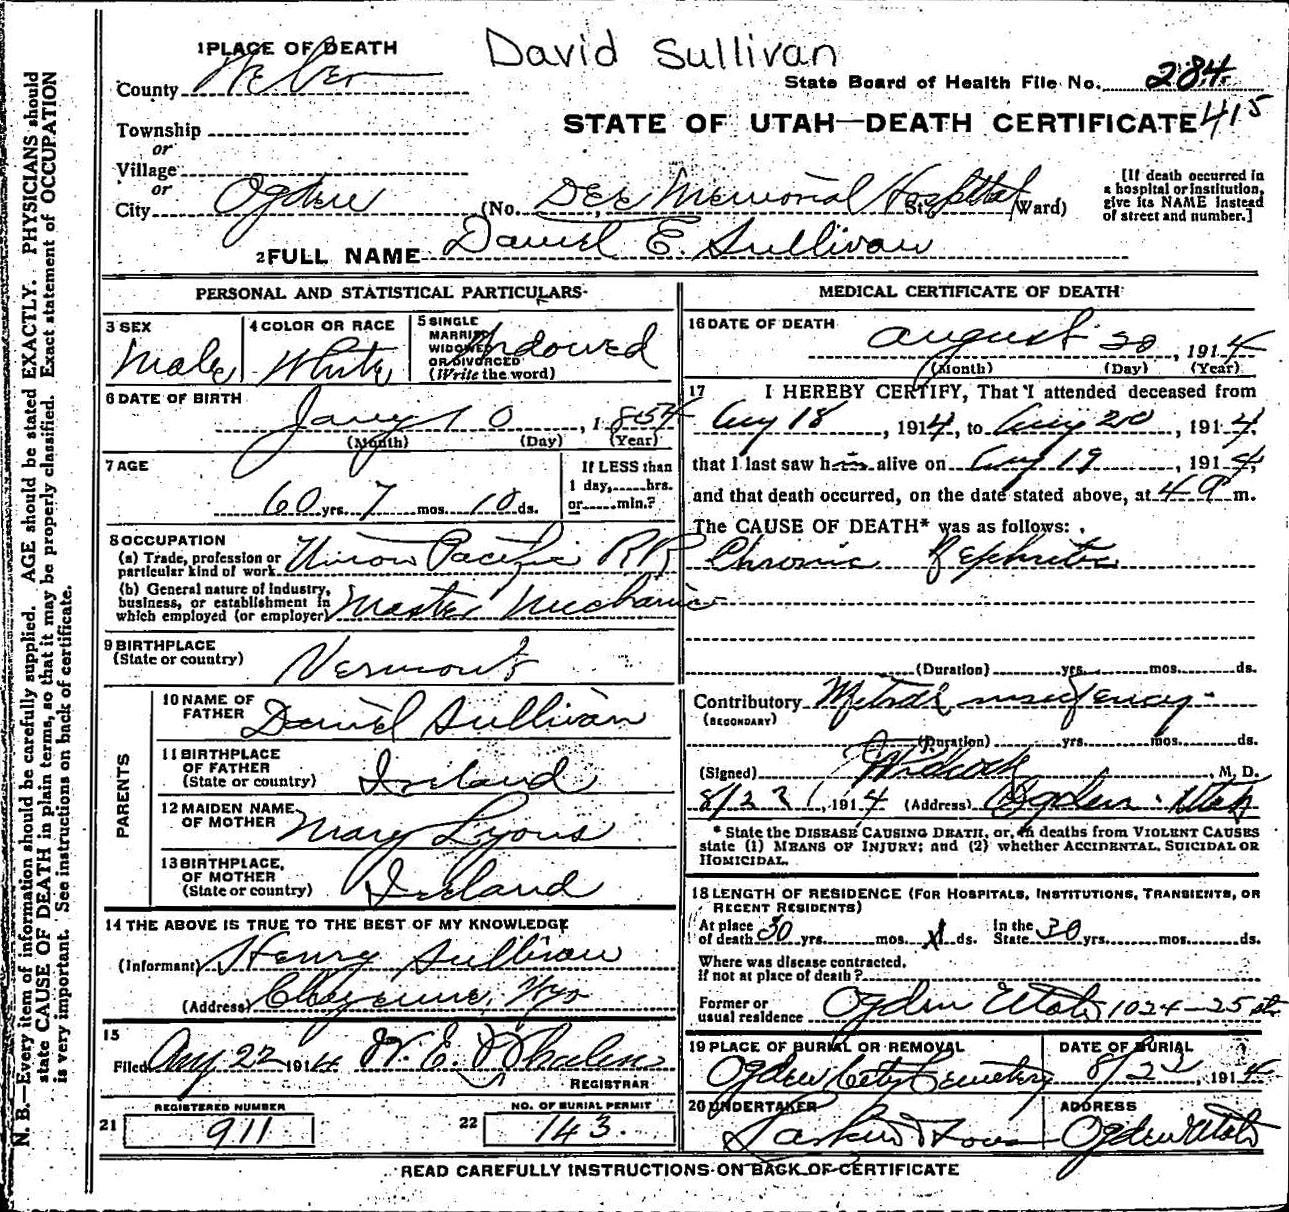 David Sullivan
1 PLACE OF DEATH
County Weber
State Board of Health File No. 284
STATE OF UTAH—DEATH CERTIFICATE 415
Township
or
Village
or
City Ogden (No. Dee Memorial Hospital St., Ward)
[If death occurred in a hospital or institution, give its NAME instead of street and number.]
2 FULL NAME Daniel E. Sullivan
PERSONAL AND STATISTICAL PARTICULARS
3 SEX
Male
4 COLOR OR RACE
White
5 SINGLE
MARRIED
WIDOWED
OR DIVORCED
(Write the word)
Widowed
6 DATE OF BIRTH
Jany 10, 1854
(Month) (Day) (Year)
7 AGE
60 yrs. 7 mos. 10 ds.
If LESS than
1 day,......hrs.
or......min.?
8 OCCUPATION
(a) Trade, profession or
particular kind of work Union Pacific RR
(b) General nature of industry,
business, or establishment in
which employed (or employer) Master Mechanic
9 BIRTHPLACE
(State or country) Vermont
PARENTS
10 NAME OF
FATHER Daniel Sullivan
11 BIRTHPLACE
OF FATHER
(State or country) Ireland
12 MAIDEN NAME
OF MOTHER Mary Lyons
13 BIRTHPLACE
OF MOTHER
(State or country) Ireland
14 THE ABOVE IS TRUE TO THE BEST OF MY KNOWLEDGE
(Informant) Henry Sullivan
(Address) Cheyenne, Wyo
15
Filed Aug 22 1914 W. E. Whalen
REGISTRAR
21 REGISTERED NUMBER
911
22 NO. OF BURIAL PERMIT
143.
MEDICAL CERTIFICATE OF DEATH
16 DATE OF DEATH
August 20, 1914
(Month) (Day) (Year)
17 I HEREBY CERTIFY, That I attended deceased from
Aug 18, 1914, to Aug 20, 1914,
that I last saw him alive on Aug 19, 1914,
and that death occurred, on the date stated above, at 4 m.
The CAUSE OF DEATH* was as follows:
Chronic Nephritis
(Duration) yrs. mos. ds.
Contributory Mitral insufficiency
(SECONDARY)
(Duration) yrs. mos. ds.
(Signed) M. D.
8/22, 1914 (Address) Ogden Utah
* State the DISEASE CAUSING DEATH, or, in deaths from VIOLENT CAUSES
state (1) MEANS OF INJURY; and (2) whether ACCIDENTAL, SUICIDAL OR
HOMICIDAL.
18 LENGTH OF RESIDENCE (FOR HOSPITALS, INSTITUTIONS, TRANSIENTS, OR
RECENT RESIDENTS)
At place
of death 30 yrs. mos. ds. In the
State 30 yrs. mos. ds.
Where was disease contracted,
if not at place of death?
Former or
usual residence Ogden Utah 1024-25 st
19 PLACE OF BURIAL OR REMOVAL
Ogden City Cemetery
DATE OF BURIAL
8/22, 1914
20 UNDERTAKER
Larkin & Sons
ADDRESS
Ogden Utah
READ CAREFULLY INSTRUCTIONS ON BACK OF CERTIFICATE
N. B.—Every item of information should be carefully supplied. AGE should be stated EXACTLY. PHYSICIANS should
state CAUSE OF DEATH in plain terms, so that it may be properly classified. Exact statement of OCCUPATION
is very important. See instructions on back of certificate.